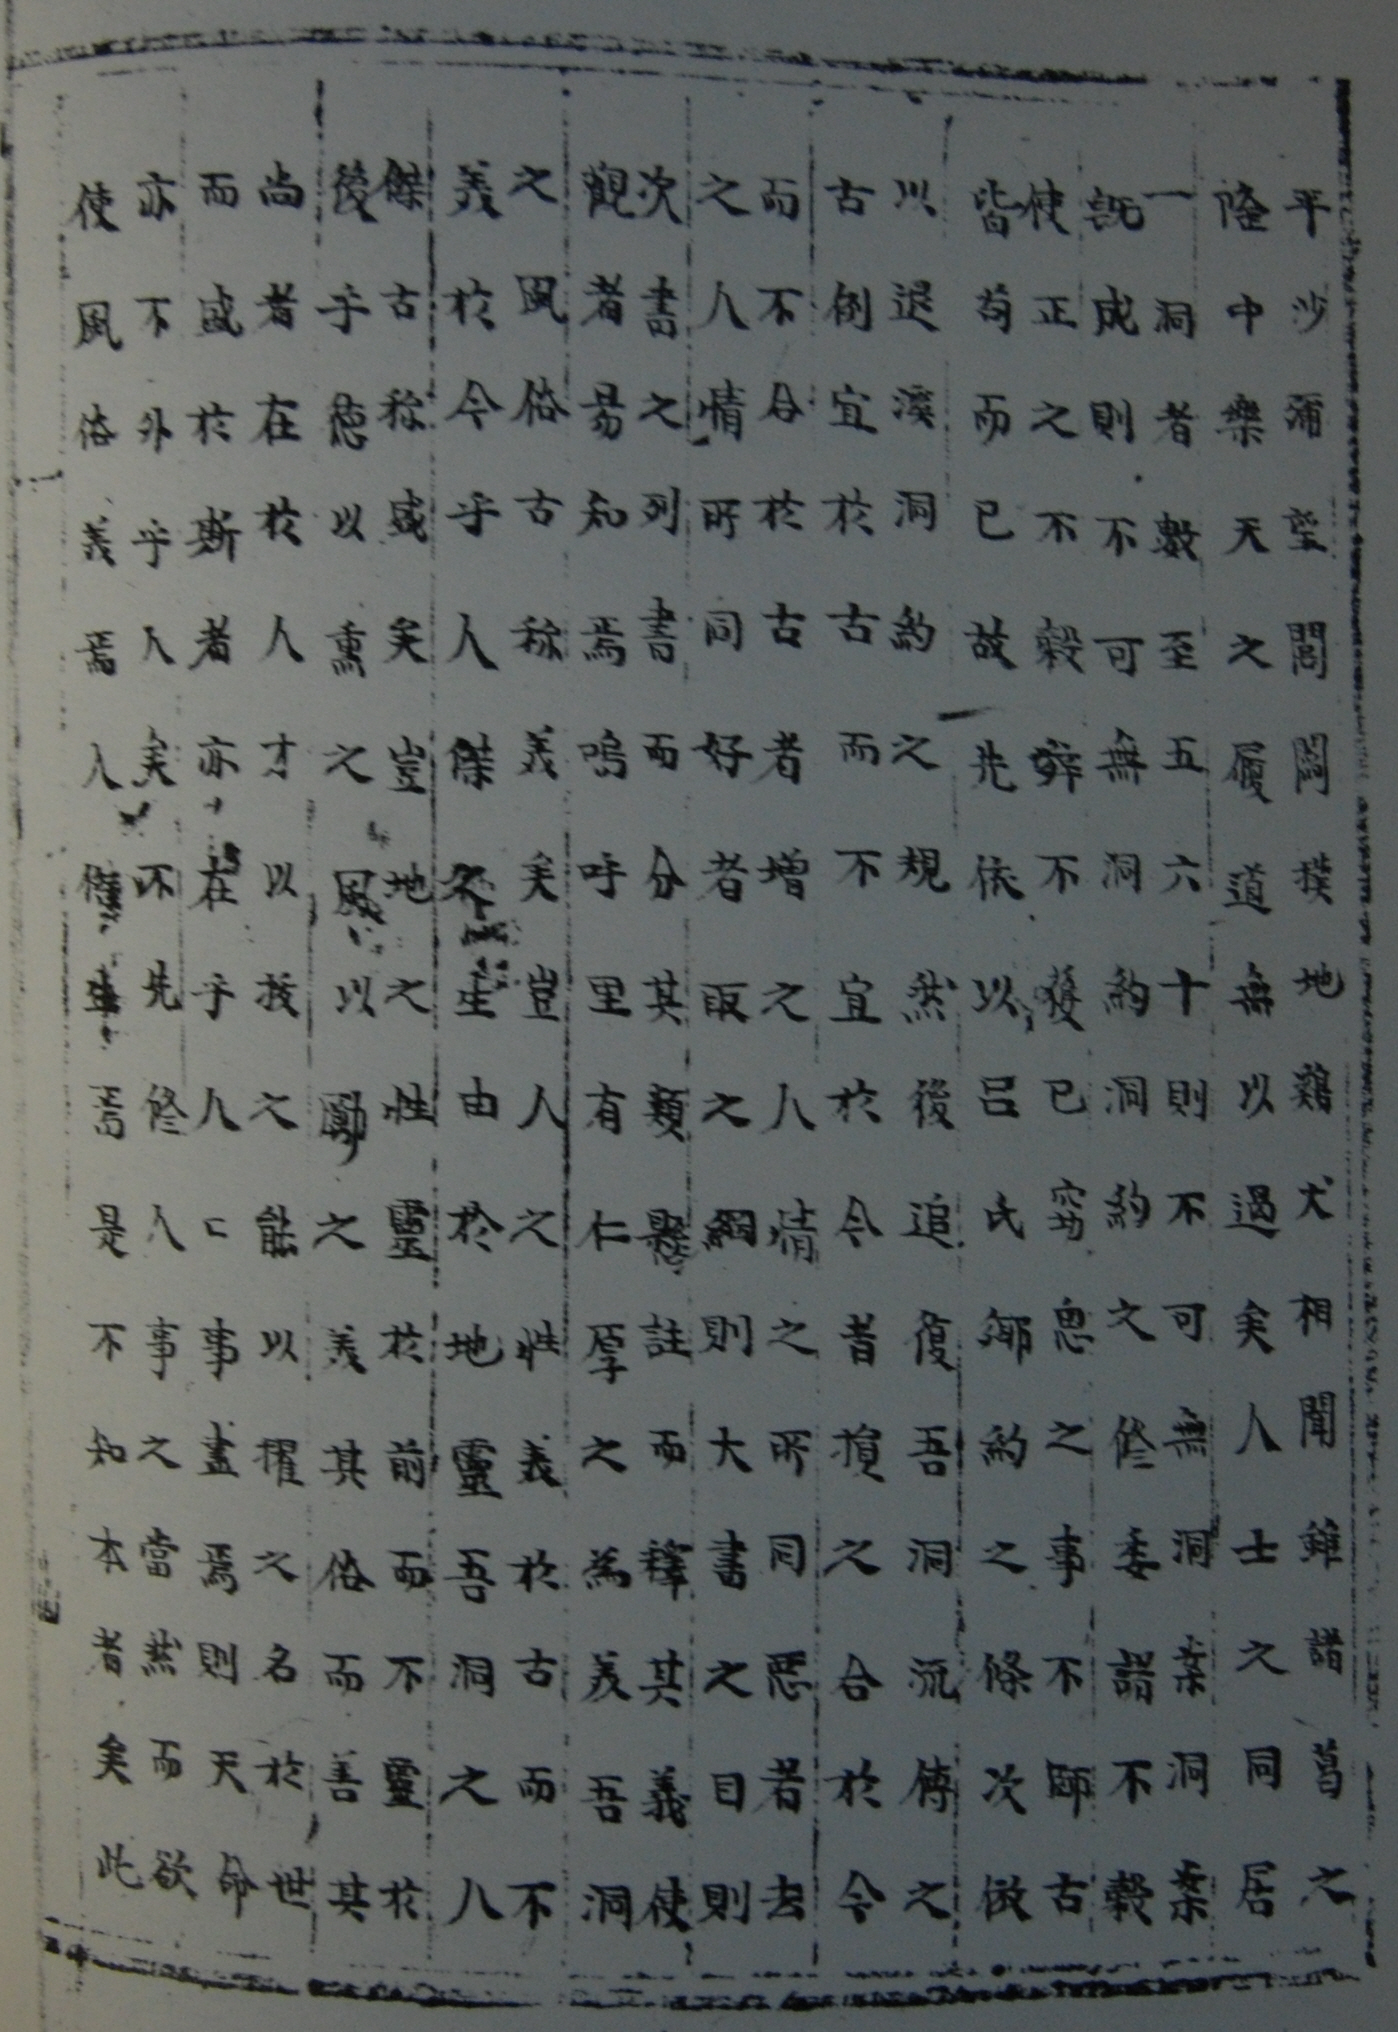 平沙彌望閭閻撲地鷄犬相聞雖諸葛之
隆中樂天之履道無以過矣人士之同居
一洞者數至五六十則不可無洞案洞案
旣成則不可無洞約洞約之修委諸不穀
使正之不穀辭不獲已窃思之事不師古
皆苟而已故先依以呂氏鄉約之條次倣
以退溪洞約之規然後追復吾洞流傳之
古例宜於古而不宜於今者損之合於今
而不合於古者增之人情之所同惡者去
之人情所同好者取之綱則大書之目則
次書之列書而分其類懸註而釋其義使
觀者易知焉嗚呼里有仁厚之為美吾洞
之風俗古称義矣豈人之性義於古而不
義於今乎人傑之生由於地靈吾洞之人
傑古称盛矣豈地之性靈於前而不靈於
後乎德以薰之風以勵之義其俗而善其
尚者在於人才以授之能以擢之名於世
而盛於斯者亦在乎人〻事盡焉則天命
亦不外乎人矣不先修人事之當然而欲
使風俗義焉人傑生焉是不知本者矣此